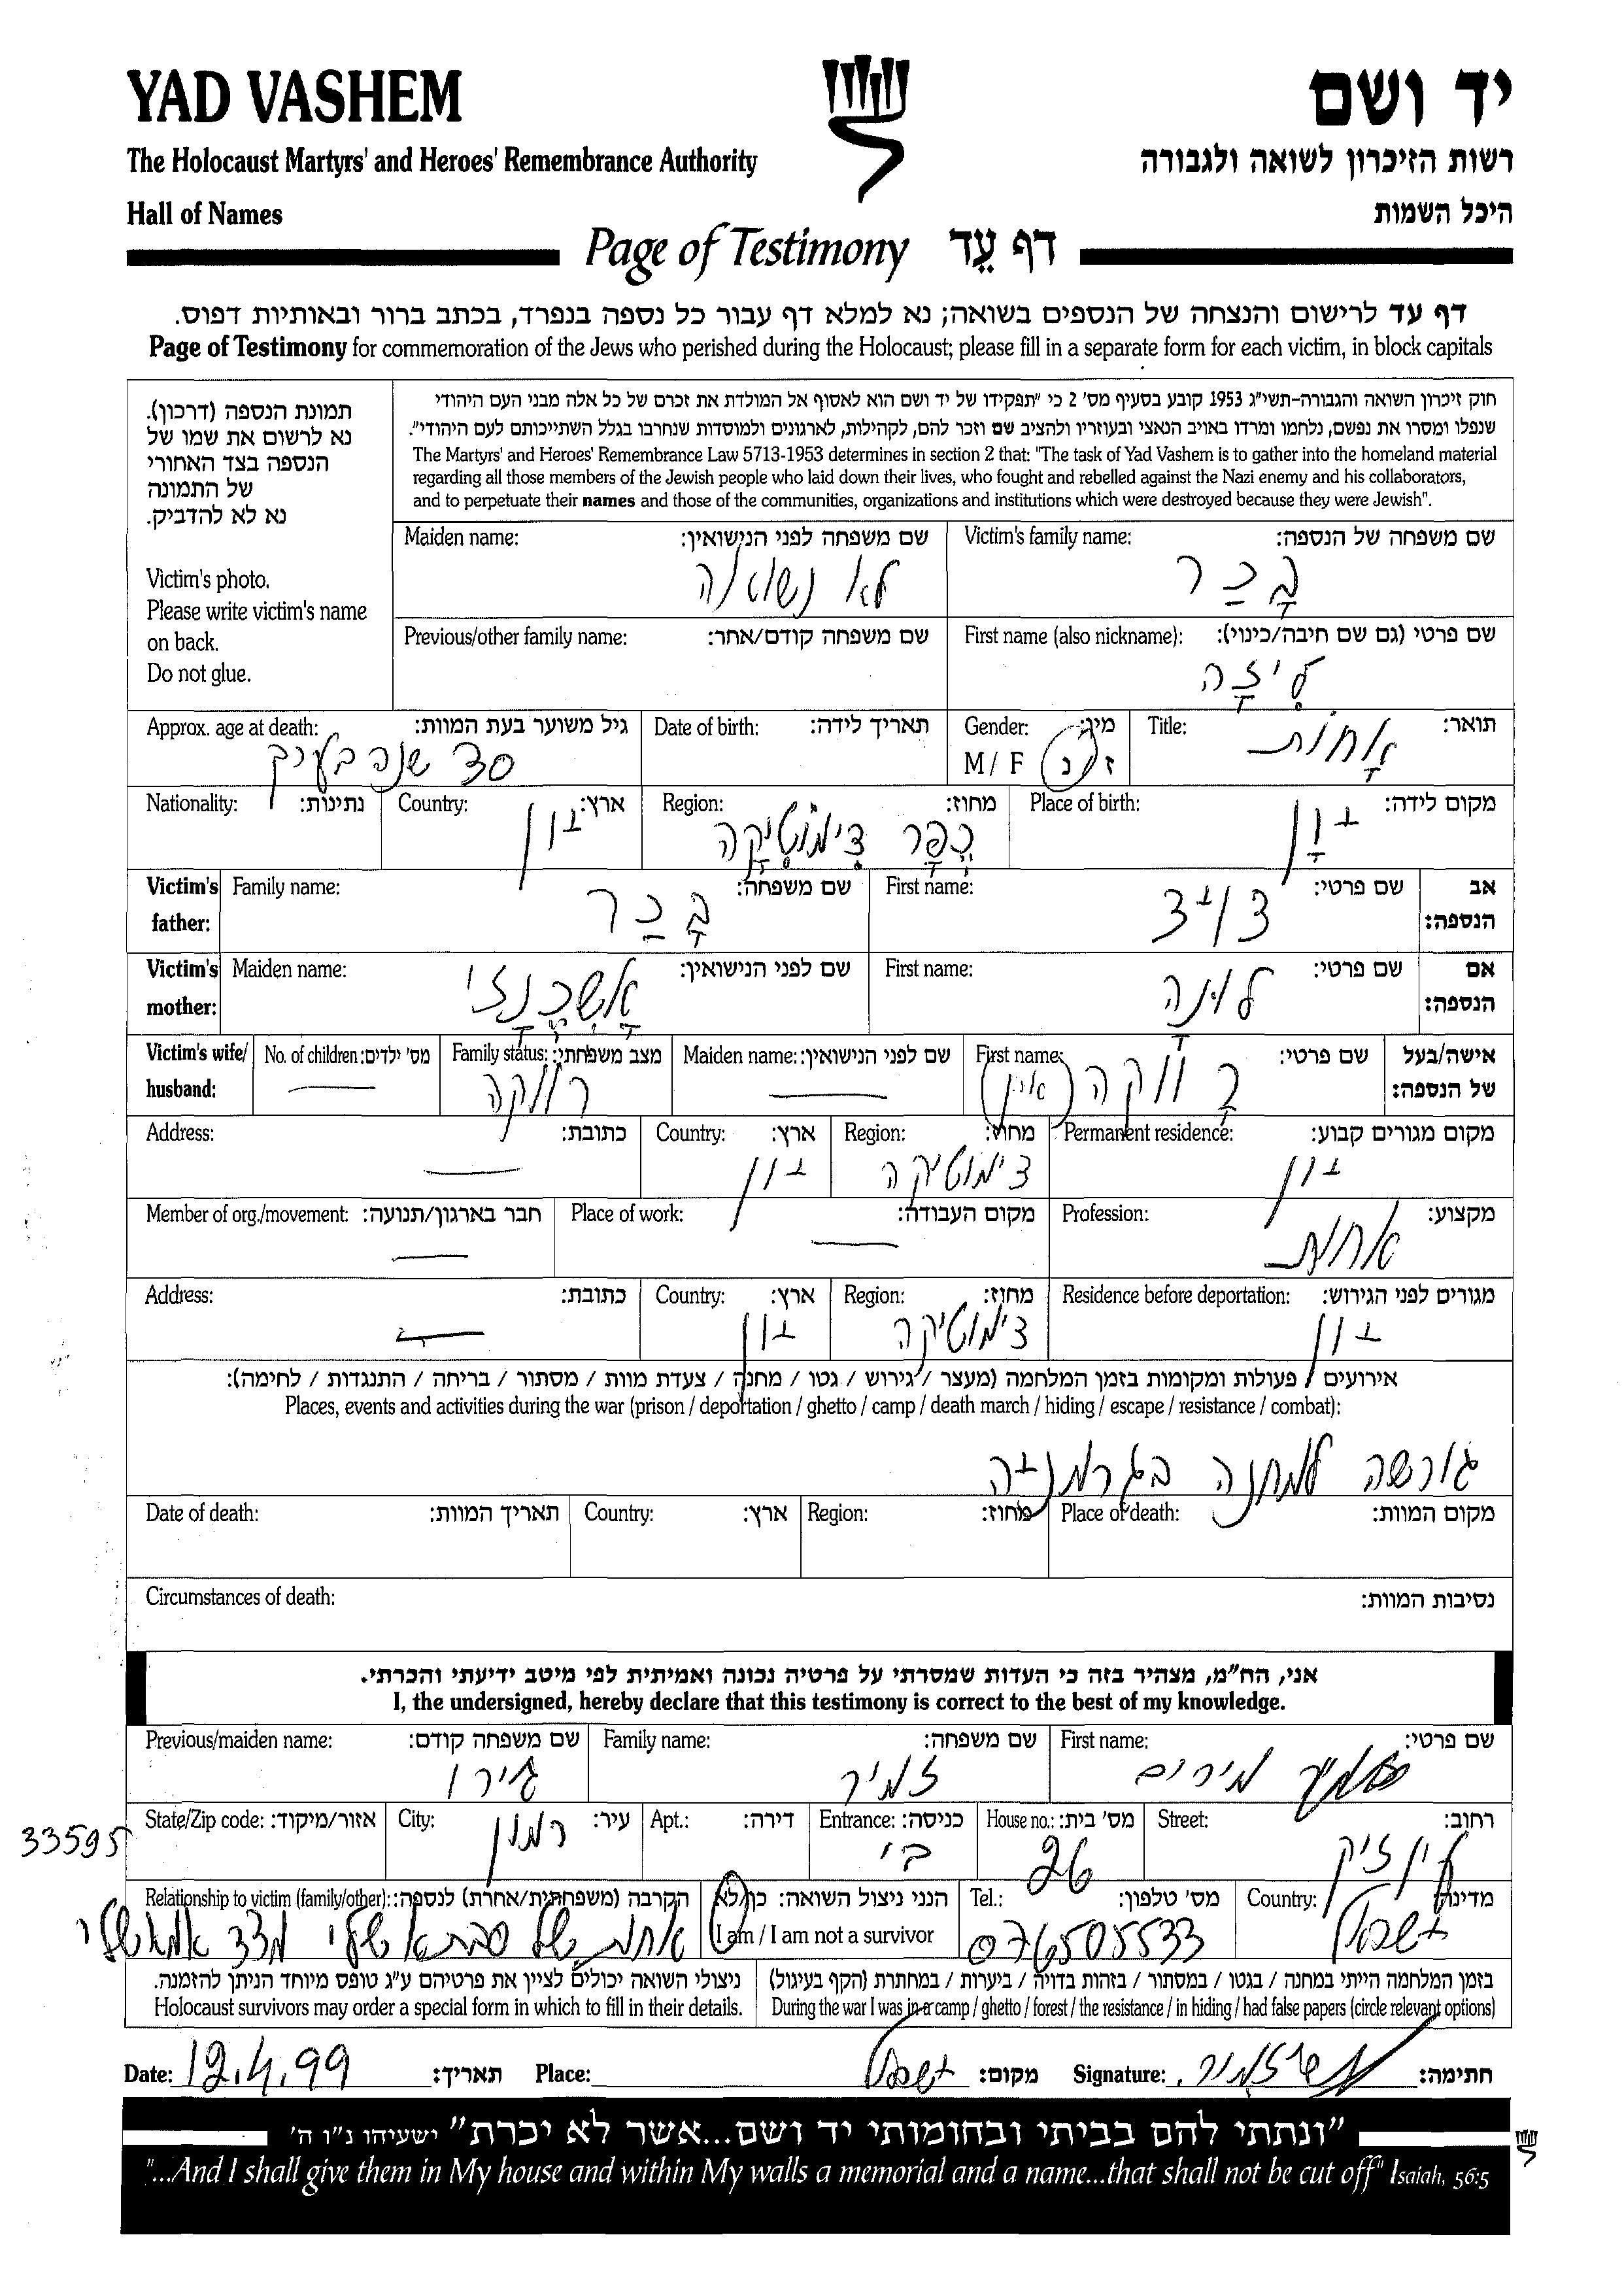 YAD VASHEM
יד ושם
The Holocaust Martyrs' and Heroes' Remembrance Authority
רשות הזיכרון לשואה ולגבורה
Hall of Names
היכל השמות
Page of Testimony דף עֵד
דף עד לרישום והנצחה של הנספים בשואה; נא למלא דף עבור כל נספה בנפרד, בכתב ברור ובאותיות דפוס.
Page of Testimony for commemoration of the Jews who perished during the Holocaust; please fill in a separate form for each victim, in block capitals
תמונת הנספה (דרכון).
נא לרשום את שמו של
הנספה בצד האחורי
של התמונה
נא לא להדביק.
Victim's photo.
Please write victim's name
on back.
Do not glue.
חוק זיכרון השואה והגבורה-תשי"ג 1953 קובע בסעיף מס' 2 כי "תפקידו של יד ושם הוא לאסוף אל המולדת את זכרם של כל אלה מבני העם היהודי
שנפלו ומסרו את נפשם, נלחמו ומרדו באויב הנאצי ובעוזריו ולהציב שם וזכר להם, לקהילות, לארגונים ולמוסדות שנחרבו בגלל השתייכותם לעם היהודי".
The Martyrs' and Heroes' Remembrance Law 5713-1953 determines in section 2 that: "The task of Yad Vashem is to gather into the homeland material
regarding all those members of the Jewish people who laid down their lives, who fought and rebelled against the Nazi enemy and his collaborators,
and to perpetuate their names and those of the communities, organizations and institutions which were destroyed because they were Jewish".
Victim's family name: שם משפחה של הנספה:
בָּכַר
Maiden name: שם משפחה לפני הנישואין:
לא נשואה
First name (also nickname): שם פרטי (גם שם חיבה/כינוי):
לִיזָה
Previous/other family name: שם משפחה קודם/אחר:
Title: תואר:
אָחוֹת
Gender: מין:
M / F ז / נ
Date of birth: תאריך לידה:
Approx. age at death: גיל משוער בעת המוות:
30 שנה בערך
Place of birth: מקום לידה:
יון
Region: מחוז:
כפר דימוטיקה
Country: ארץ:
יון
Nationality: נתינות:
Victim's father: אב הנספה:
First name: שם פרטי:
דויד
Family name: שם משפחה:
בָּכַר
Victim's mother: אם הנספה:
First name: שם פרטי:
לונה
Maiden name: שם לפני הנישואין:
אשכנזי
Victim's wife/ husband: אישה/בעל של הנספה:
First name: שם פרטי:
רווקה (אין)
Maiden name: שם לפני הנישואין:
Family status: מצב משפחתי:
רווקה
No. of children: מס' ילדים:
Permanent residence: מקום מגורים קבוע:
יון
Region: מחוז:
דימוטיקה
Country: ארץ:
יון
Address: כתובת:
Profession: מקצוע:
אחות
Place of work: מקום העבודה:
Member of org./movement: חבר בארגון/תנועה:
Residence before deportation: מגורים לפני הגירוש:
יון
Region: מחוז:
דימוטיקה
Country: ארץ:
יון
Address: כתובת:
אירועים / פעולות ומקומות בזמן המלחמה (מעצר / גירוש / גטו / מחנה / צעדת מוות / מסתור / בריחה / התנגדות / לחימה):
Places, events and activities during the war (prison / deportation / ghetto / camp / death march / hiding / escape / resistance / combat):
גורשה למחנה בגרמניה
Place of death: מקום המוות:
Region: מחוז:
Country: ארץ:
Date of death: תאריך המוות:
Circumstances of death: נסיבות המוות:
אני, הח"מ, מצהיר בזה כי העדות שמסרתי על פרטיה נכונה ואמיתית לפי מיטב ידיעתי והכרתי.
I, the undersigned, hereby declare that this testimony is correct to the best of my knowledge.
First name: שם פרטי:
מירים
Family name: שם משפחה:
זמיר
Previous/maiden name: שם משפחה קודם:
Street: רחוב:
House no.: מס' בית:
26
Entrance: כניסה:
ב'
Apt.: דירה:
City: עיר:
State/Zip code: אזור/מיקוד:
33595
Country: מדינה:
ישראל
Tel.: מס' טלפון:
076505533
הנני ניצול השואה: כן/לא
I am / I am not a survivor
Relationship to victim (family/other): הקרבה (משפחתית/אחרת) לנספה:
אחות של סבתא שלי מצד אמא שלי
בזמן המלחמה הייתי במחנה / בגטו / במסתור / בזהות בדויה / ביערות / במחתרת (הקף בעיגול)
During the war I was in a camp / ghetto / forest / the resistance / in hiding / had false papers (circle relevant options)
ניצולי השואה יכולים לציין את פרטיהם ע"ג טופס מיוחד הניתן להזמנה.
Holocaust survivors may order a special form in which to fill in their details.
Date: 12.4.99 תאריך: Place: ישראל מקום: Signature: חתימה:
"ונתתי להם בביתי ובחומותי יד ושם...אשר לא יכרת" ישעיהו נ"ו ה'
"...And I shall give them in My house and within My walls a memorial and a name...that shall not be cut off" Isaiah, 56:5